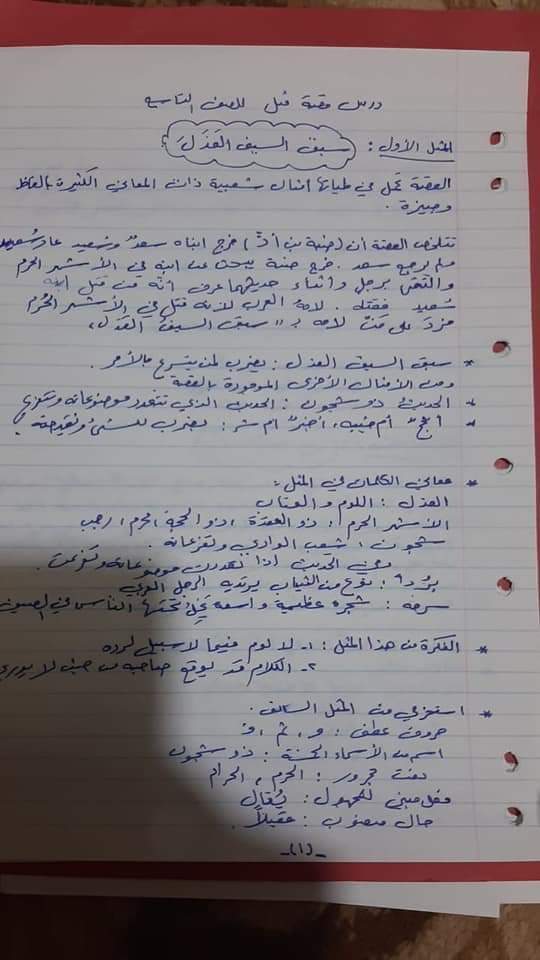 درس قصة مثل للصف التاسع
المثل الأول: سبق السيف العَذَلَ
القصة تحمل في طياتها أمثال شعبية ذات المعاني الكثيرة بألفاظ
وجيزة .
تتلخص القصة أن (ضبة بن أدّ) خرج ابناه سعدٌ وسعيد عاد سُعيد
ولم يرجع سعد . خرج ضبة يبحث عن ابنه في الأشهر الحرم
والتقى برجل وأثناء حديثهما عرف أنّه من قتل ابنه
سُعيد فقتله . لامهُ العرب لأنه قتل في الأشهر الحُرُم
فردّ على مَنْ لامه بـ "سبق السيفُ العَذَلَ"
* سبق السيف العذل : يضرب لمن يتسرع بالأمر .
ومن الأمثال الأخرى الموجودة بالقصة
* الحديثُ ذو شجون : الحديث الذي تتعدد موضوعاته وتتنوع
* أم خيرٌ أم شر : يضرب للشيء ونقيضه
* معاني الكلمات في المثل :
العذل : اللوم والعتاب
الأشهر الحرم : ذو القعدة ، ذو الحجة ، محرم ، رجب
شجون : شعب الوادي وتفرعاته .
معنى الحديث إذا تعددت موضوعاته وتنوعت
بُرْدا : نوع من الثياب يرتديه الرجل
سرحة : شجرة عظيمة واسعة يحلّ تحتها الناس في الصيف
* الفكرة من هذا المثل : ١- لا لوم فيما لا سبيل لرده
٢- الكلام قد يوقع صاحبه من حيث لا يدري
* استخرجي من المثل السابق .
حروف عطف : و ، ثم ، فـ
اسم من الأسماء الخمسة : ذو شجون
نعت مجرور : الحرم ، الحرام
فعل مبني للمجهول : يُقال
حال منصوب : .
-(١)-